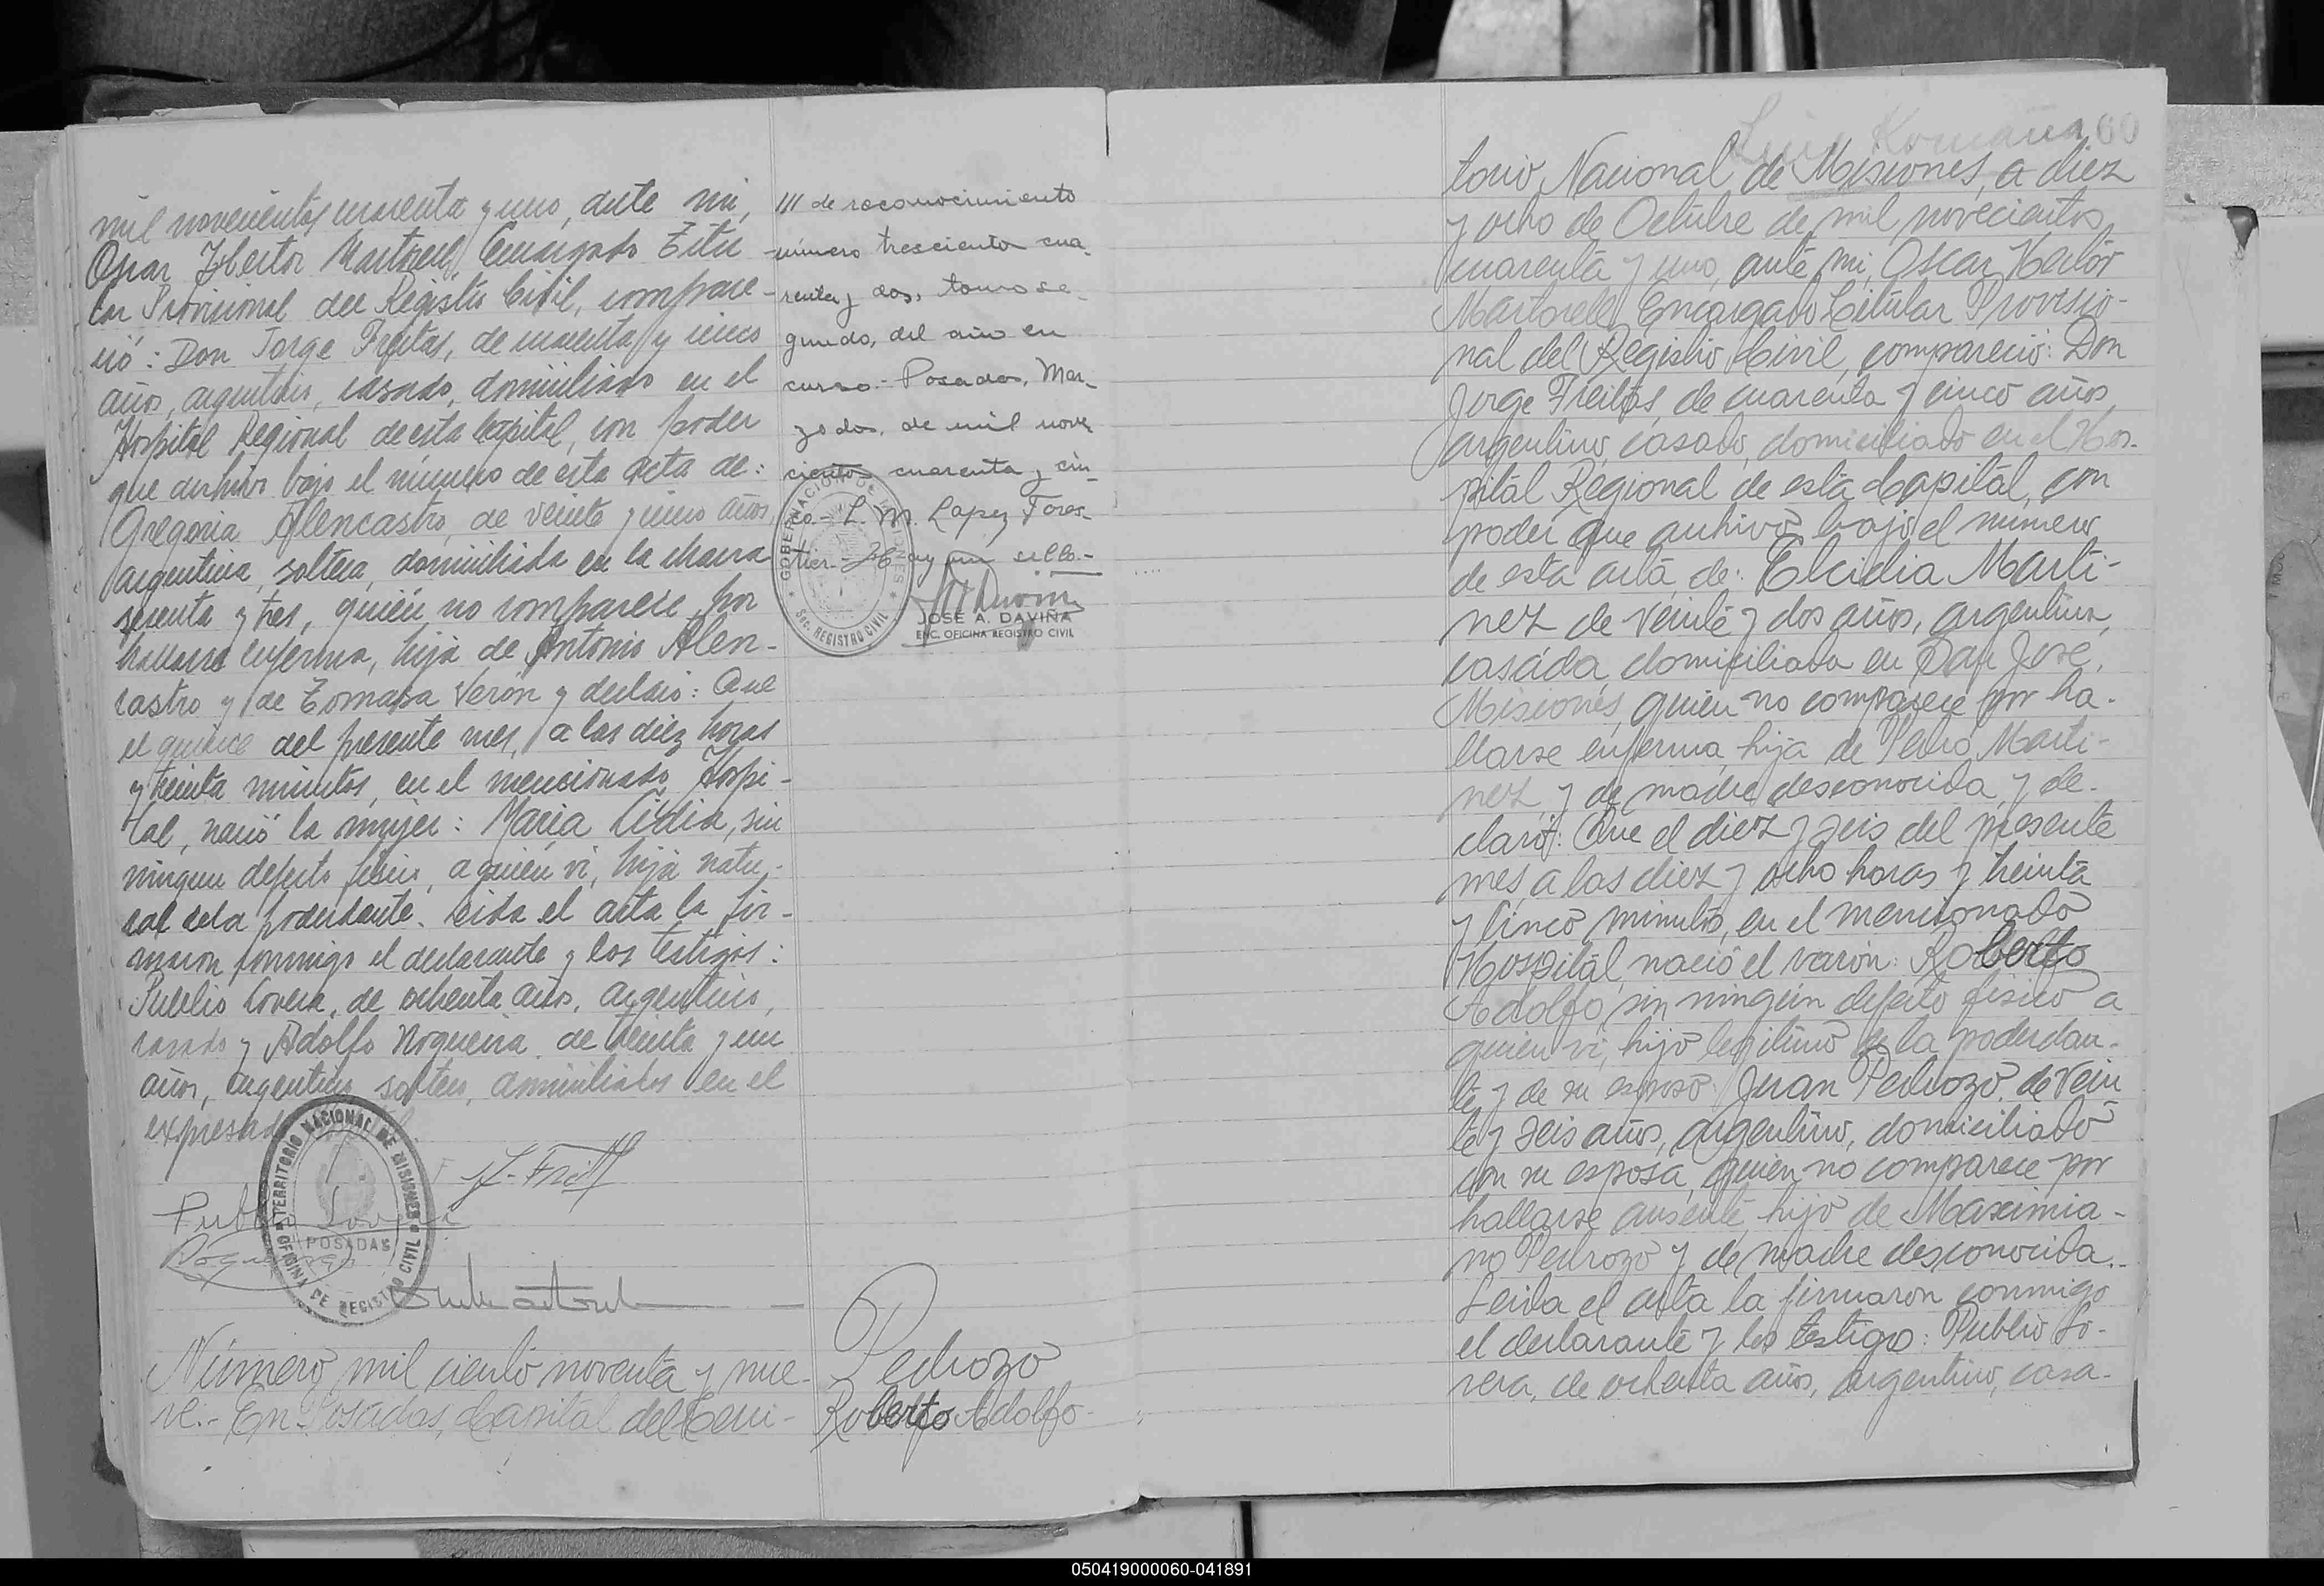 mil novecientos cuarenta y uno, ante mi,
Oscar Hector Martorell, Encargado Titu
lar Provisional del Registro Civil, compare-
ció: Don Jorge Freitas, de cuarenta y cinco
años, argentino, casado, domiciliado en el
Hospital Regional de esta Capital, con poder
que archivo bajo el número de esta acta de:
Gregoria Alencastro, de veinte y cinco años,
argentina, soltera, domiciliada en la chacra
sesenta y tres, quién no comparece por
hallarse enferma, hija de Antonio Alen-
castro y de Tomasa Verón y declaró: Que
el quince del presente mes, a las diez horas
y treinta minutos, en el mencionado Hospi-
tal, nació la mujer: Maria Lidia, sin
ningun defecto fisico, a quién vi, hija natu-
ral de la poderdante. Leida el acta la fir-
maron conmigo el declarante y los testigos:
Publio Lovera, de ochenta años, argentino,
casado y Adolfo Nogueira de treinta y un
años, argentino, soltero, domiciliados en el
expresado
TERRITORIO NACIONAL DE MISIONES
OFICINA DE REGISTRO CIVIL
POSADAS
J. Freit
Publio Lovera
Nogueira
Número mil ciento noventa y nue-
ve.- En Posadas, Capital del Terri-
III de reconocimiento
número trescientos cua-
renta y dos, tomo se-
gundo, del año en
curso.- Posadas, Mar-
zo dos, de mil nove
cientos cuarenta y cin-
co- L. M. Lopez Fores-
tier- Hay un sello.-
GOBERNACION DE MISIONES
Sec. REGISTRO CIVIL
JOSE A. DAVIÑA
ENC. OFICINA REGISTRO CIVIL
Pedrozo
Roberto Adolfo-
60
torio Nacional de Misiones, a diez
y ocho de Octubre de mil novecientos
cuarenta y uno, ante mi, Oscar Hector
Martorell Encargado Titular Provisio-
nal del Registro Civil, compareció: Don
Jorge Freitas, de cuarenta y cinco años,
argentino, casado, domiciliado en el Hos-
pital Regional de esta Capital, con
poder que archivo bajo el numero
de esta acta, de: Elcidia Marti-
nez de veinte y dos años, argentina,
casada, domiciliada en San José,
Misiones, quién no comparece por ha-
llarse enferma, hija de Pedro Marti-
nez y de madre desconocida, y de-
claró: Que el diez y seis del presente
mes, a las diez y ocho horas y treinta
y cinco minutos, en el mencionado
Hospital, nació el varón: Roberto
Adolfo, sin ningún defecto fisico a
quien vi, hijo legitimo de la poderdan-
te y de su esposo: Juan Pedrozo, de vein
te y seis años, argentino, domiciliado
con su esposa, quién no comparece por
hallarse ausente, hijo de Maximia-
no Pedrozo y de madre desconocida.-
Leida el acta la firmaron conmigo
el declarante y los testigos: Publio Lo-
vera, de ochenta años, argentino, casa-
050419000060-041891